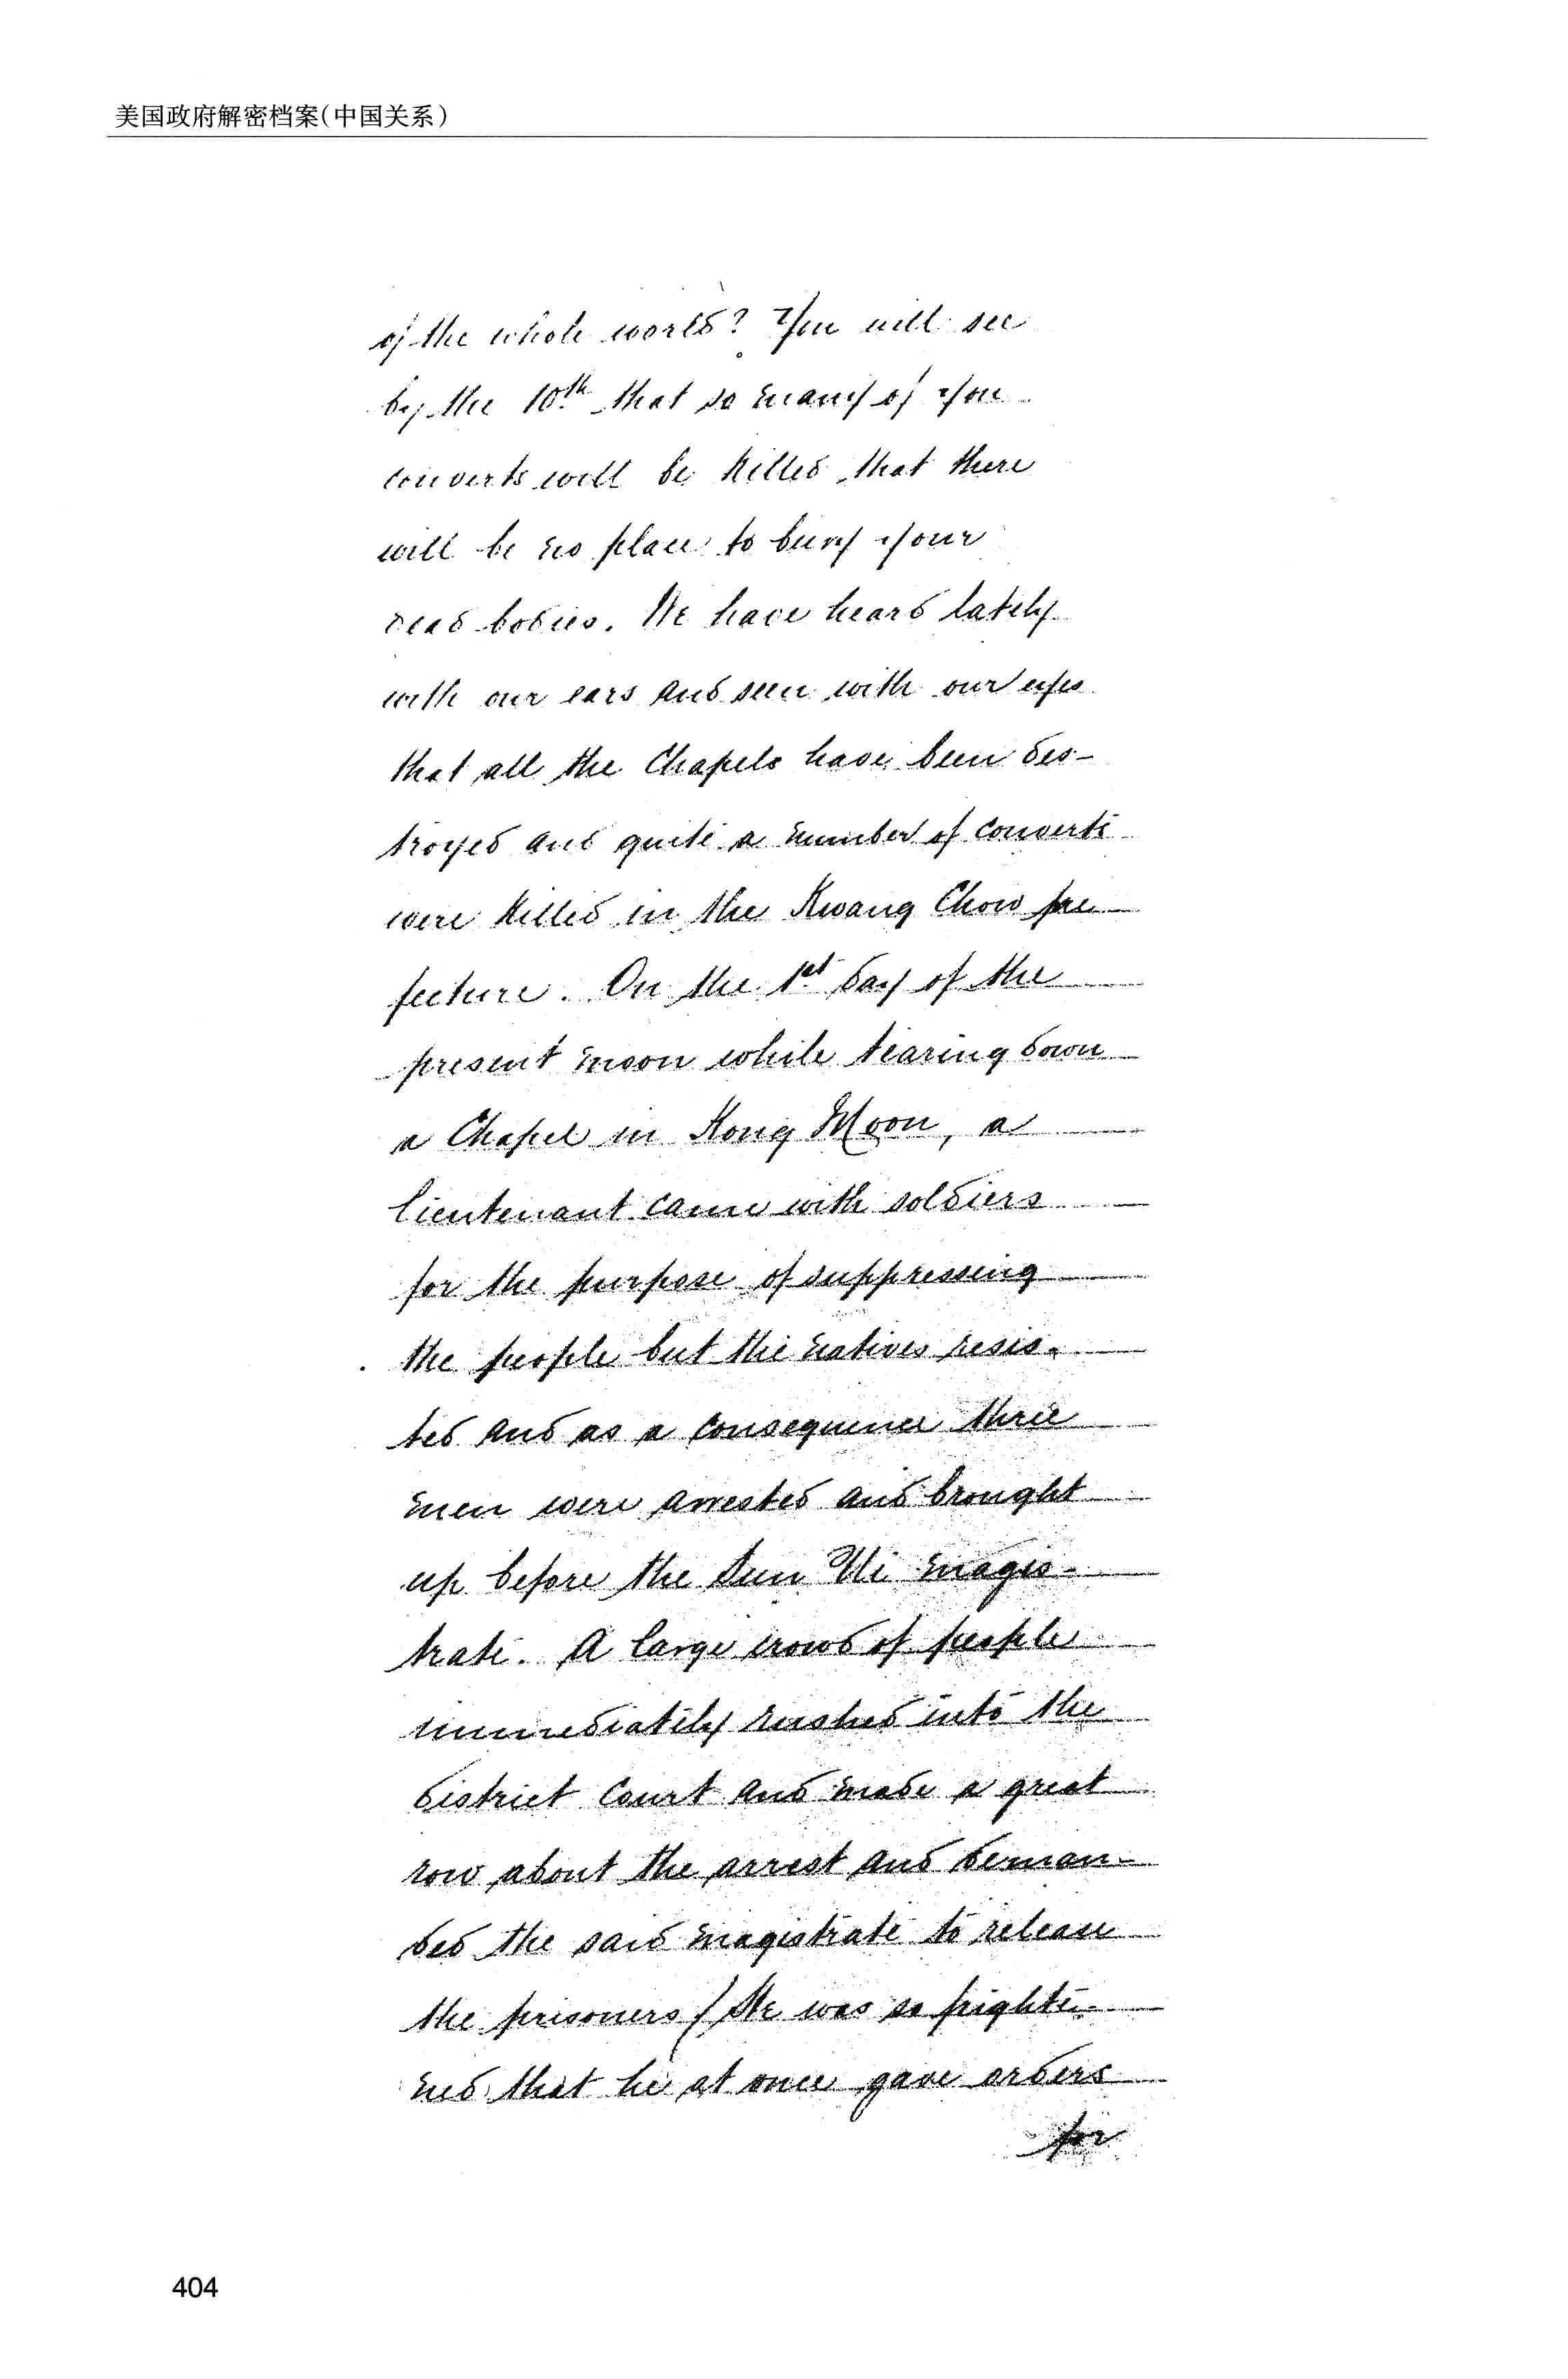 美国政府解密档案(中国关系)
of the whole world? You will see
by the 10th that so many of you
converts will be killed that there
will be no place to bury your
dead bodies. We have heard lately
with our ears and seen with our eyes
that all the Chapels have been des-
troyed and quite a number of converts
were killed in the Kwang Chow pre-
fecture. On the 1st day of the
present moon while tearing down
a Chapel in Kong Moon, a
lieutenant came with soldiers
for the purpose of suppressing
the people but the natives resis-
ted and as a consequence three
men were arrested and brought
up before the Sun Ui magis-
trate. A large crowd of people
immediately rushed into the
district Court and made a great
row about the arrest and deman-
ded the said magistrate to release
the prisoners / He was so fright-
ened that he at once gave orders
for
404